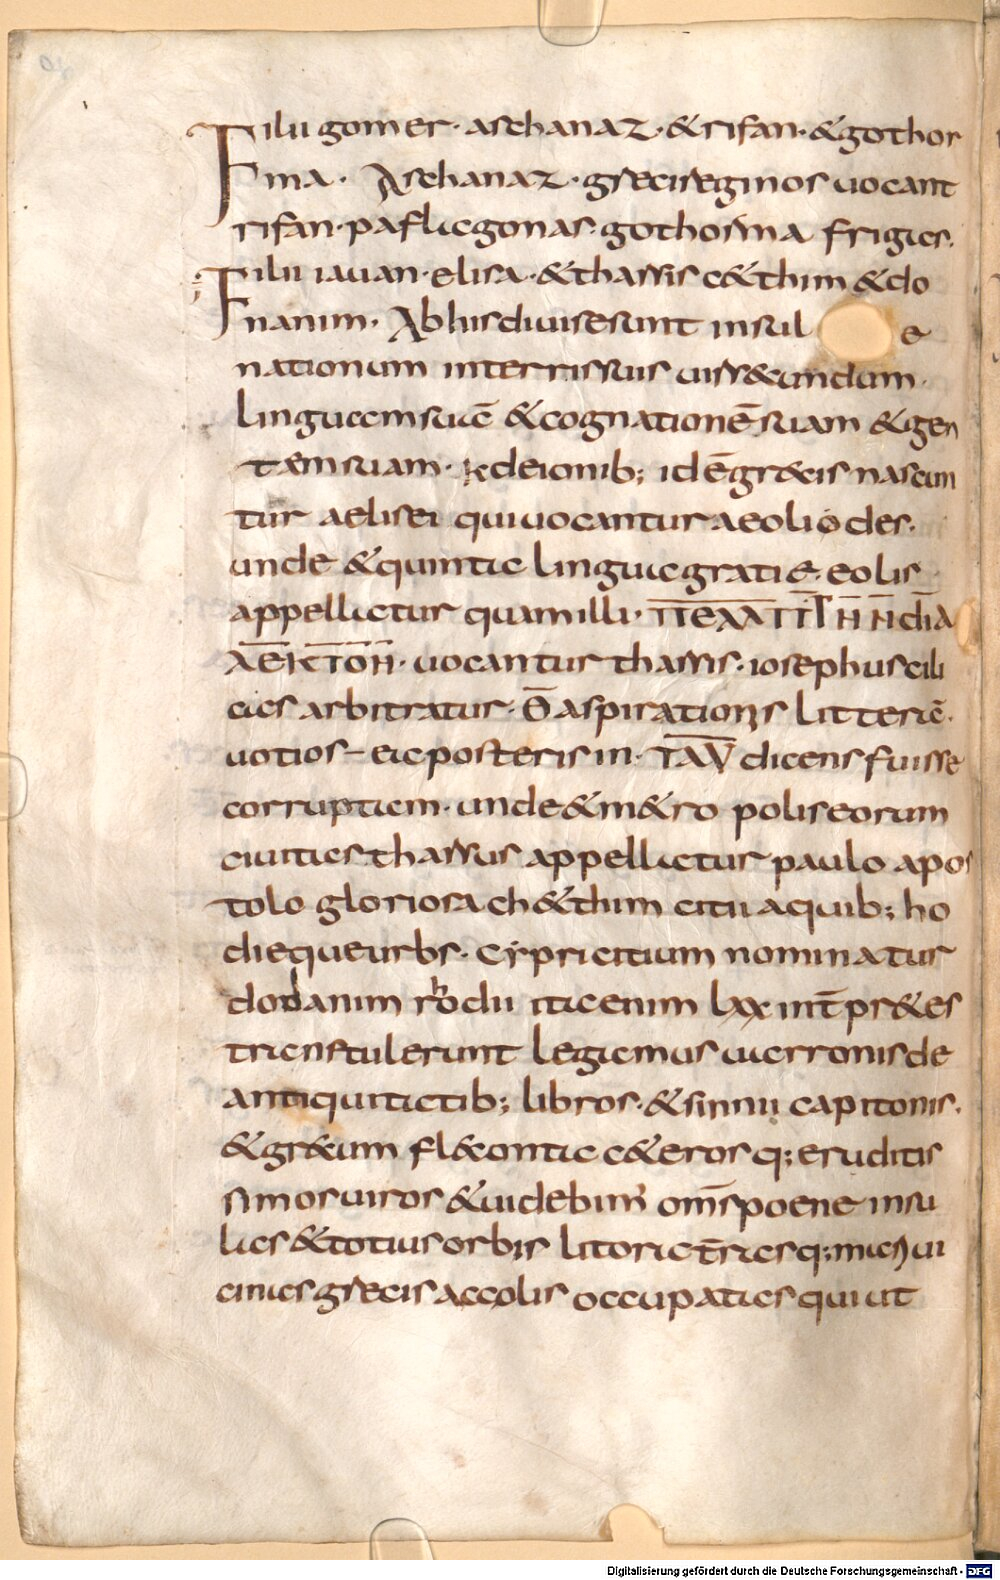 Filii gomer· aschanaz·&rifan·&gothor
ma· Aschanaz·greci reginos uocant
rifan·paflagonas·gothorma frigias.
Filii iauan·elisa·&tharsis c&thim &do
nanim· Ab his diuise sunt insul e
nationum in terris suis uiss&undum·
linguam suā &cognationē suam &gen
tem suam· Ex deionib; idē gr&cis nascun
tur aelisei qui uocantur aeoliodes·
unde &quinta lingua gratiē·eolis
appellatur quam illi· ΠΕΛΛΠΤΗΝ Η diA
ΛΕΚΤΟΗ· uocantur tharsis·iosephus cili
cias arbitratur·Θ̄ aspirationis litterā·
uotios— ac posteris in· TAV dicens fuisse
corruptam·unde&m&ro polis eorum
ciuitas tharsus appellatur paulo apos
tolo gloriosa ch&thim citii aquib; ho
dieque urbs·cypri citium nominatur
dodanim rhodii ita enim lxx int̄pr&es
transtulerunt legamus uarronis de
antiquitatib; libros·&sinnii capitonis·
&gr&um fl&onta c&eros q; eruditis
simos uiros &uidebim' om̄s poene insu
las &totius orbis litora t̄ras q; mari ui
cinas grecis accolis occupatas qui ut
Digitalisierung gefördert durch die Deutsche Forschungsgemeinschaft - DFG